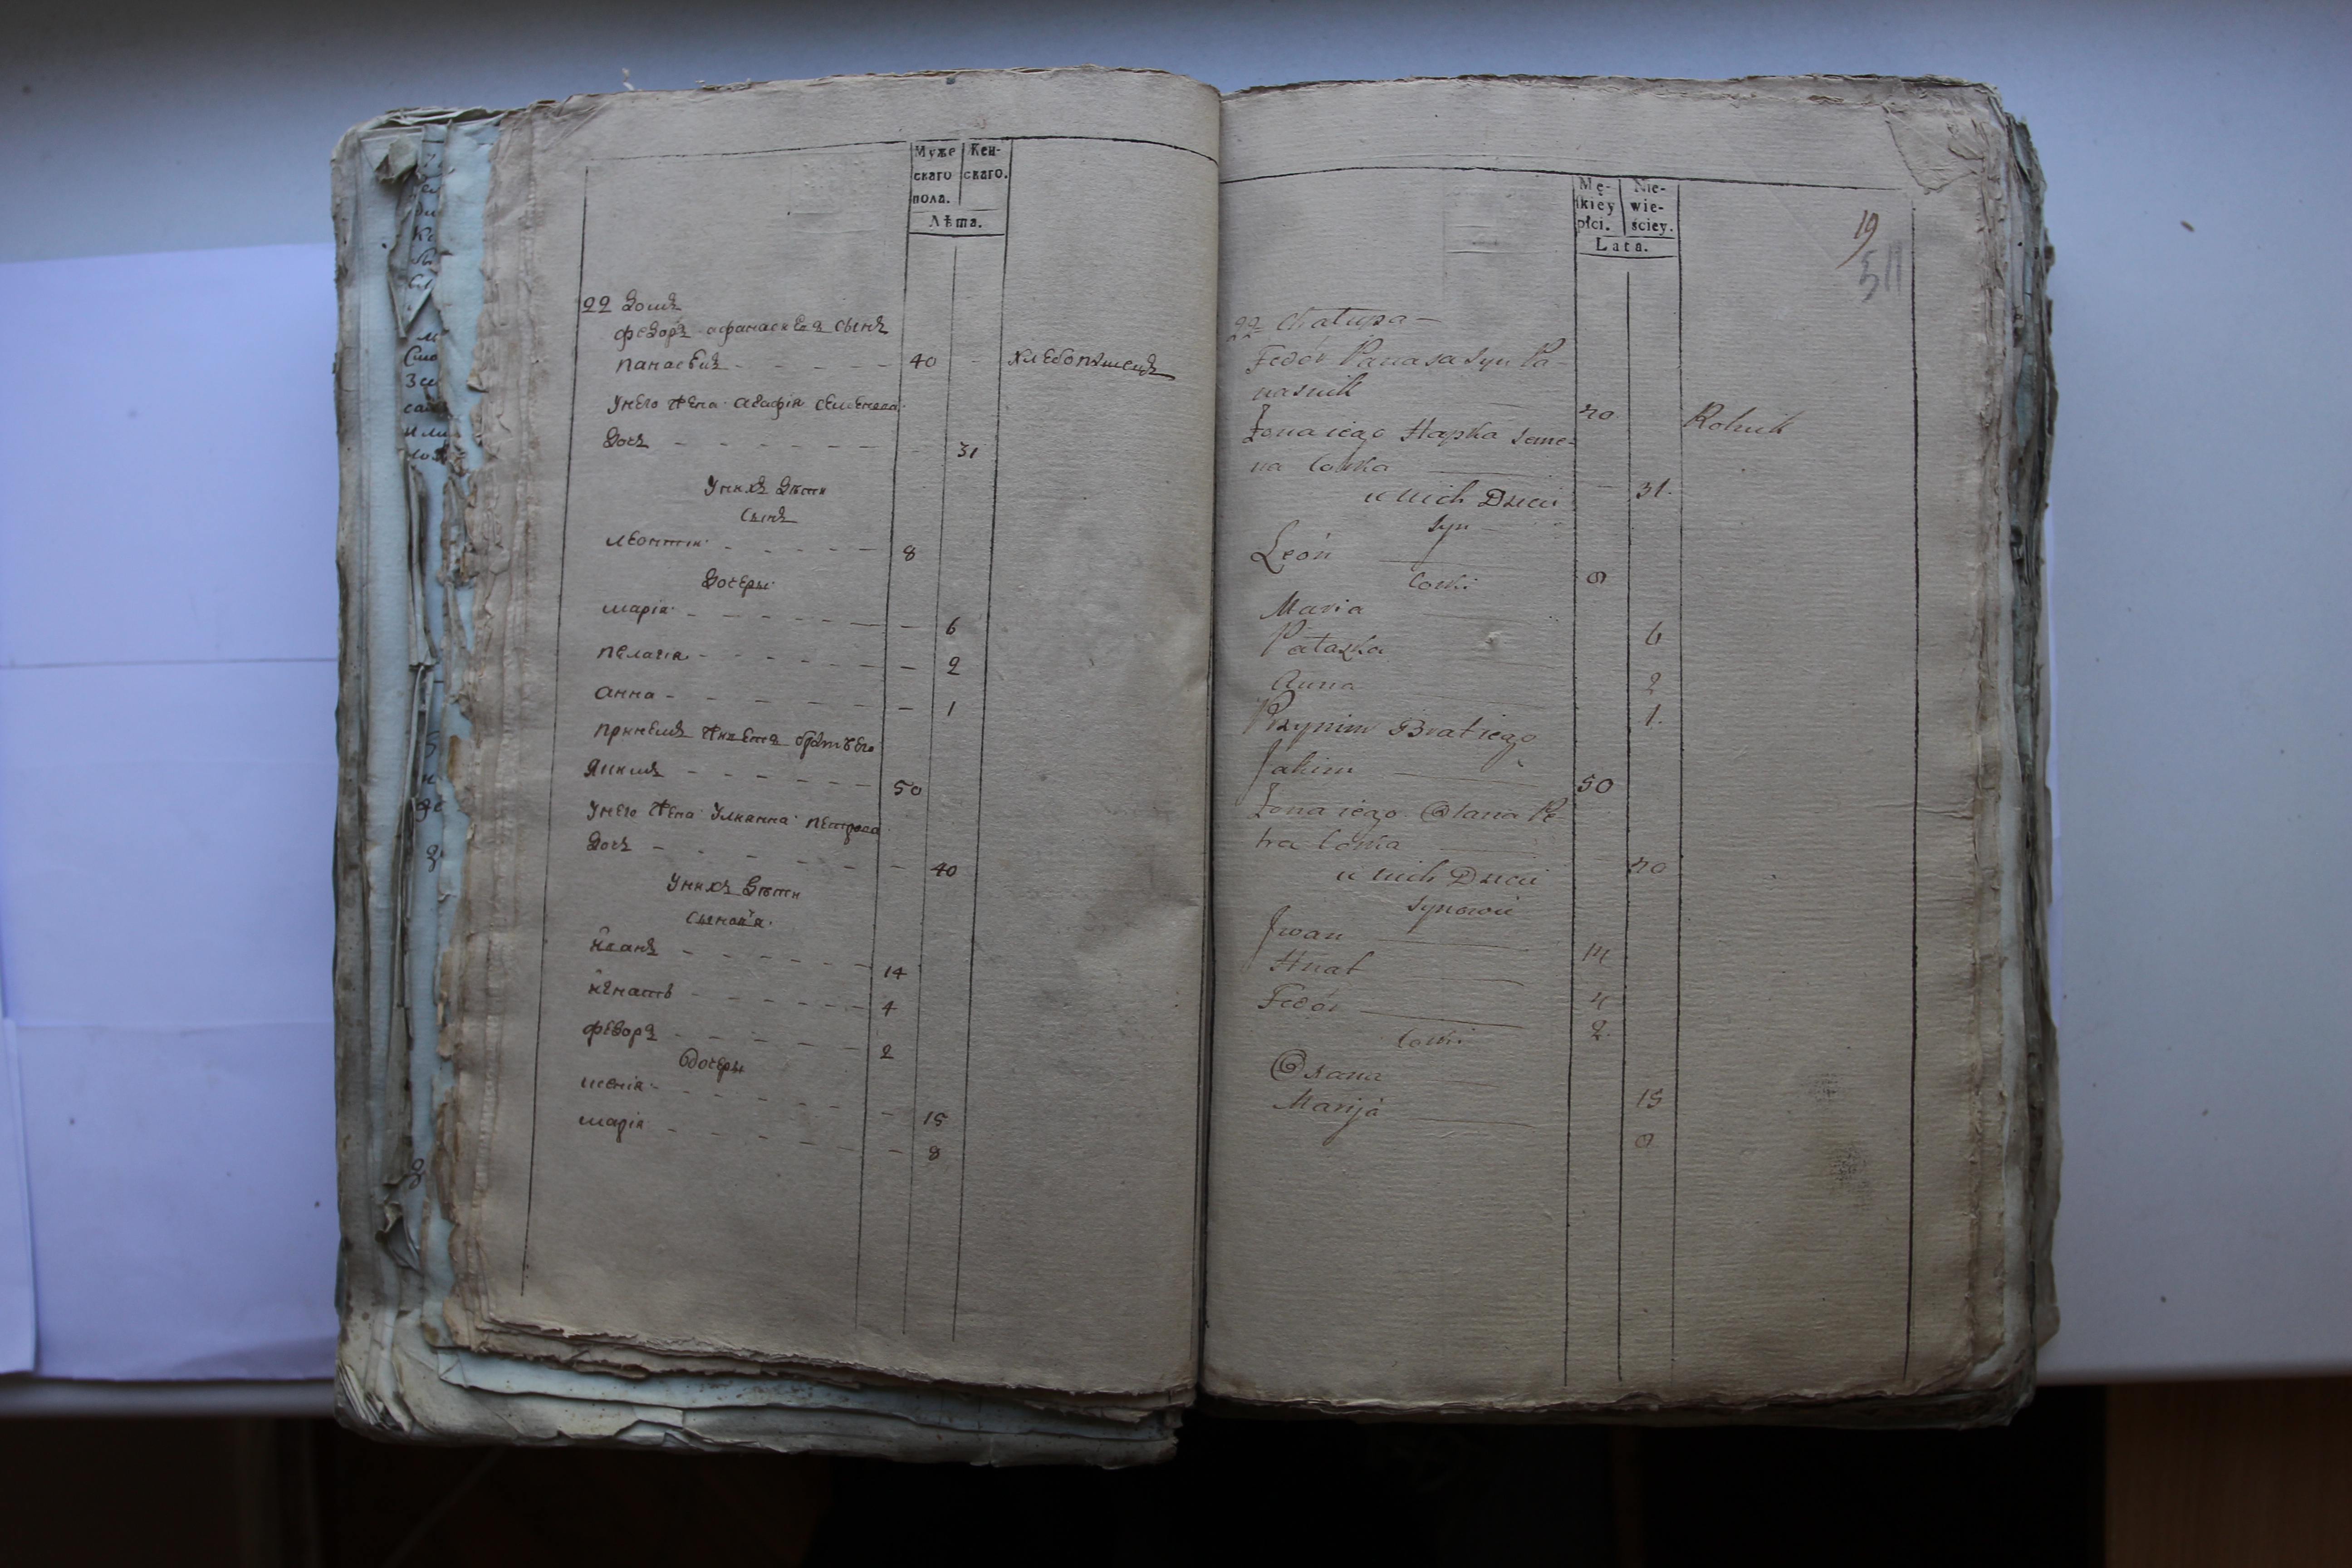 Муже
скаго
пола.
Жен-
скаго.
Лѣта.
22 Домъ
федоръ афанасиевъ сынъ
панасвиъ 40 хлебопашецъ
Унего жена агафія семенова
дочь 31
Унихъ дѣти
сынъ
леонтіи 8
дочеры
маріа 6
пелагіа 2
анна 1
принемъ живетъ братъ его
Якимъ 50
Унего жена Улианна петрова
дочь 40
Унихъ дѣти
сыновя
иванъ 14
игнатъ 4
федоръ 2
дочеры
ксеніа 15
маріа 8
Mę-
skiey
płci.
Nie-
wie-
ściey.
Lata.
19
511
22 Chałupa
Fedór Panasa Syn Pa-
nasnik 40 Rolnik
Żona iego Hapka Seme-
na Corka 31.
u nich Dzieci
Syn
León 8
Corki
Maria 6
Pałazka 2
Anna 1.
Przynim Brat iego
Jakim 50
Żona iego Olana Pe
tra Corka 40
u nich Dzieci
Synowie
Jwan 14
Hnat 4
Fedór 2.
Corki
Oxana 15
Marija 8